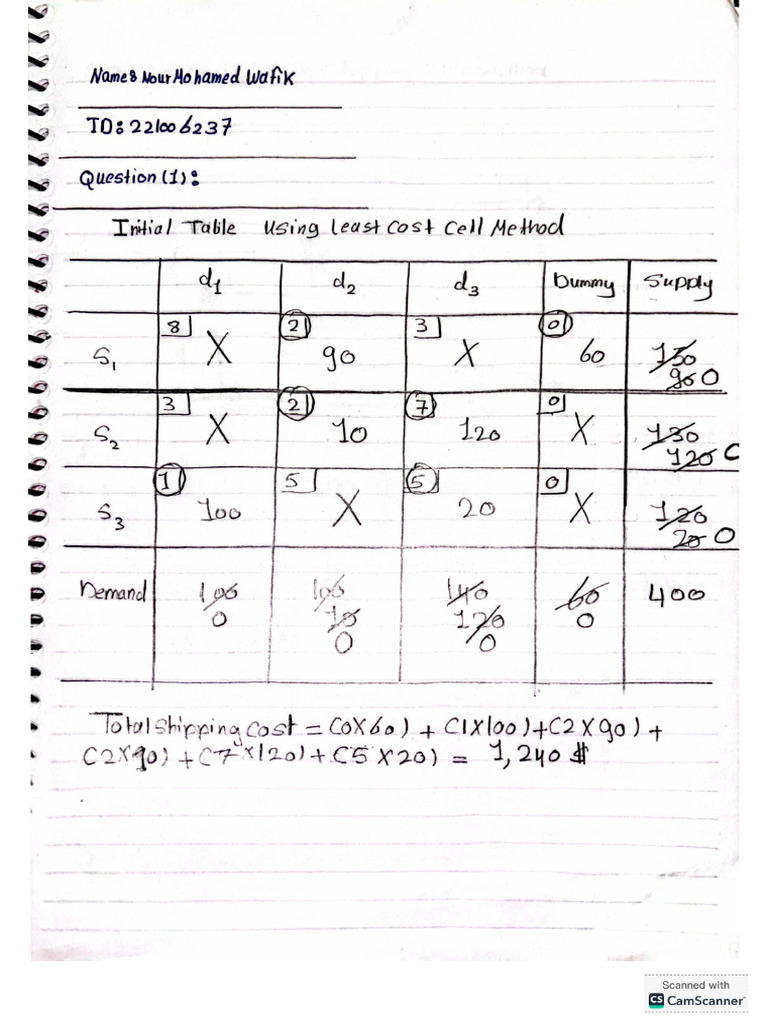 Name: Nour Mohamed Wafik
ID: 221006237
Question (1):
Initial Table Using Least Cost Cell Method
d1 d2 d3 Dummy Supply
S1 8 X 2 90 3 X 0 60 150 90 0
S2 3 X 2 10 7 120 0 X 130 120 0
S3 1 100 5 X 5 20 0 X 120 20 0
Demand 100 0 100 10 0 140 120 0 60 0 400
Total shipping cost = (0X60) + (1X100) + (2X90) +
(2X10) + (7X120) + (5X20) = 1,240 $
Scanned with
CS CamScanner